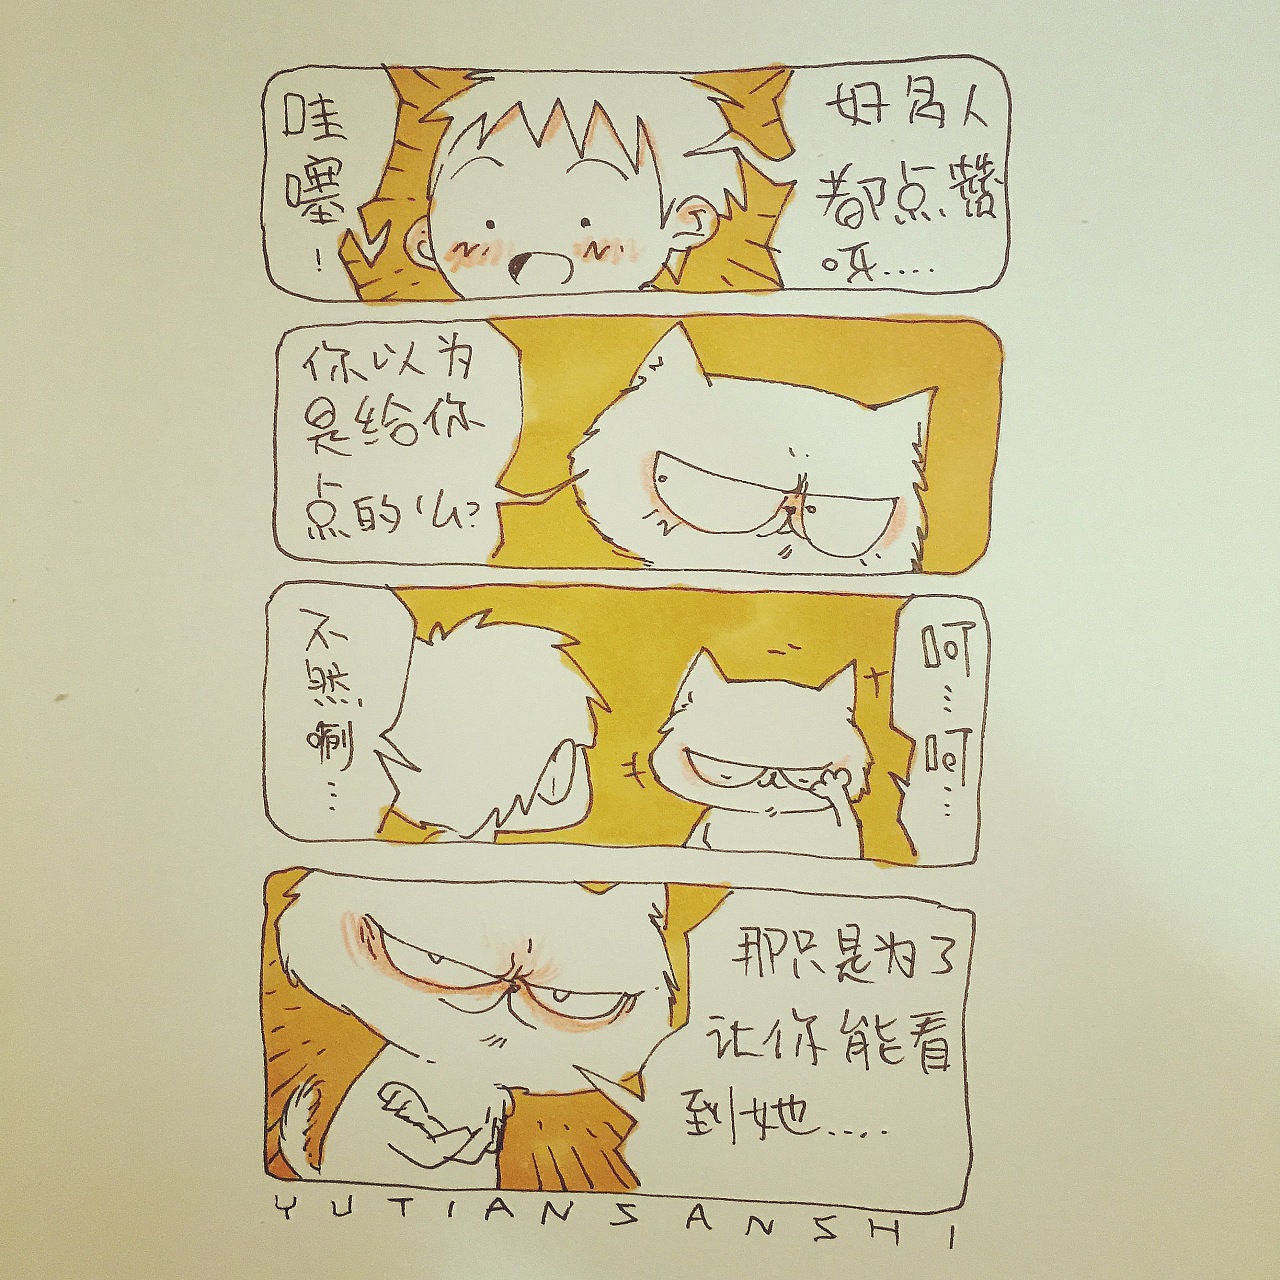 哇噻!
好多人
都点赞
呀....
你以为
是给你
点的么?
不然咧...
呵...呵...
那只是为了
让你能看
到她....
YUTIANSANSHI